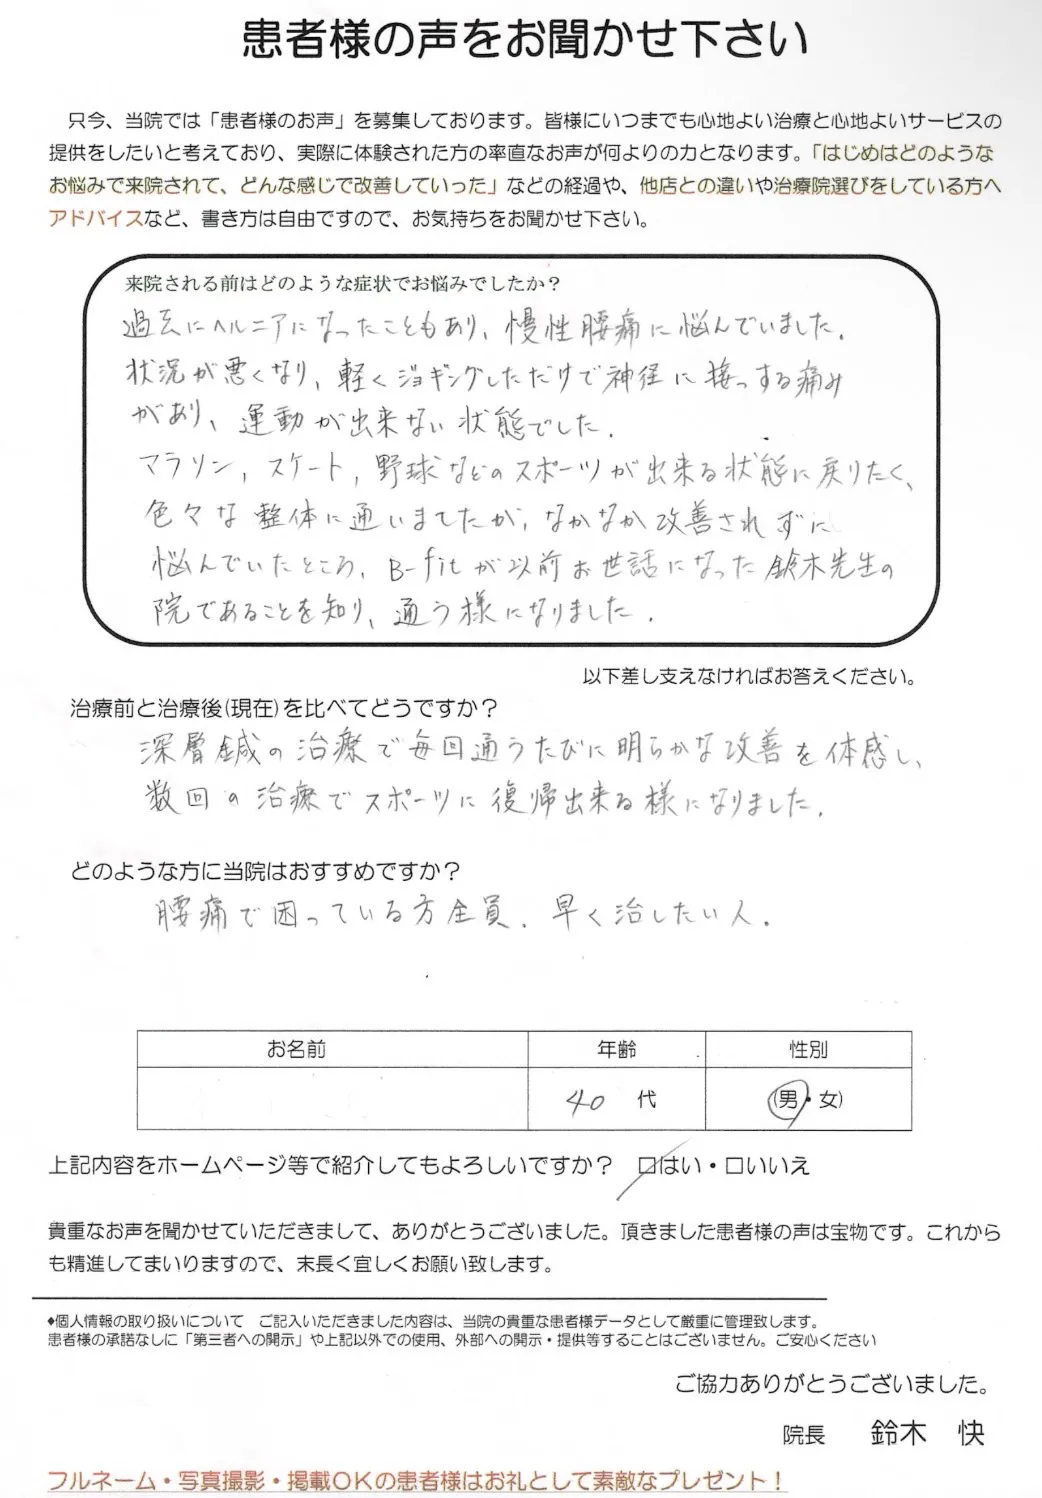 患者様の声をお聞かせ下さい
只今、当院では「患者様のお声」を募集しております。皆様にいつまでも心地よい治療と心地よいサービスの
提供をしたいと考えており、実際に体験された方の率直なお声が何よりの力となります。「はじめはどのような
お悩みで来院されて、どんな感じで改善していった」などの経過や、他店との違いや治療院選びをしている方へ
アドバイスなど、書き方は自由ですので、お気持ちをお聞かせ下さい。
来院される前はどのような症状でお悩みでしたか？
過去にヘルニアになったこともあり、慢性腰痛に悩んでいました。
状況が悪くなり、軽くジョギングしただけで神経に接っする痛み
があり、運動が出来ない状態でした。
マラソン, スケート, 野球などのスポーツが出来る状態に戻りたく、
色々な整体に通いましたが、なかなか改善されずに
悩んでいたところ、B-fitが以前お世話になった鈴木先生の
院であることを知り、通う様になりました。
以下差し支えなければお答えください。
治療前と治療後(現在)を比べてどうですか？
深層鍼の治療で毎回通うたびに明らかな改善を体感し、
数回の治療でスポーツに復帰出来る様になりました。
どのような方に当院はおすすめですか？
腰痛で困っている方全員. 早く治したい人.
お名前 年齢 性別
40 代 (男・女)
上記内容をホームページ等で紹介してもよろしいですか？ □はい・□いいえ
貴重なお声を聞かせていただきまして、ありがとうございました。頂きました患者様の声は宝物です。これから
も精進してまいりますので、末長く宜しくお願い致します。
◆個人情報の取り扱いについて ご記入いただきました内容は、当院の貴重な患者様データとして厳重に管理致します。
患者様の承諾なしに「第三者への開示」や上記以外での使用、外部への開示・提供等することはございません。ご安心ください
ご協力ありがとうございました。
院長 鈴木 快
フルネーム・写真撮影・掲載OKの患者様はお礼として素敵なプレゼント！